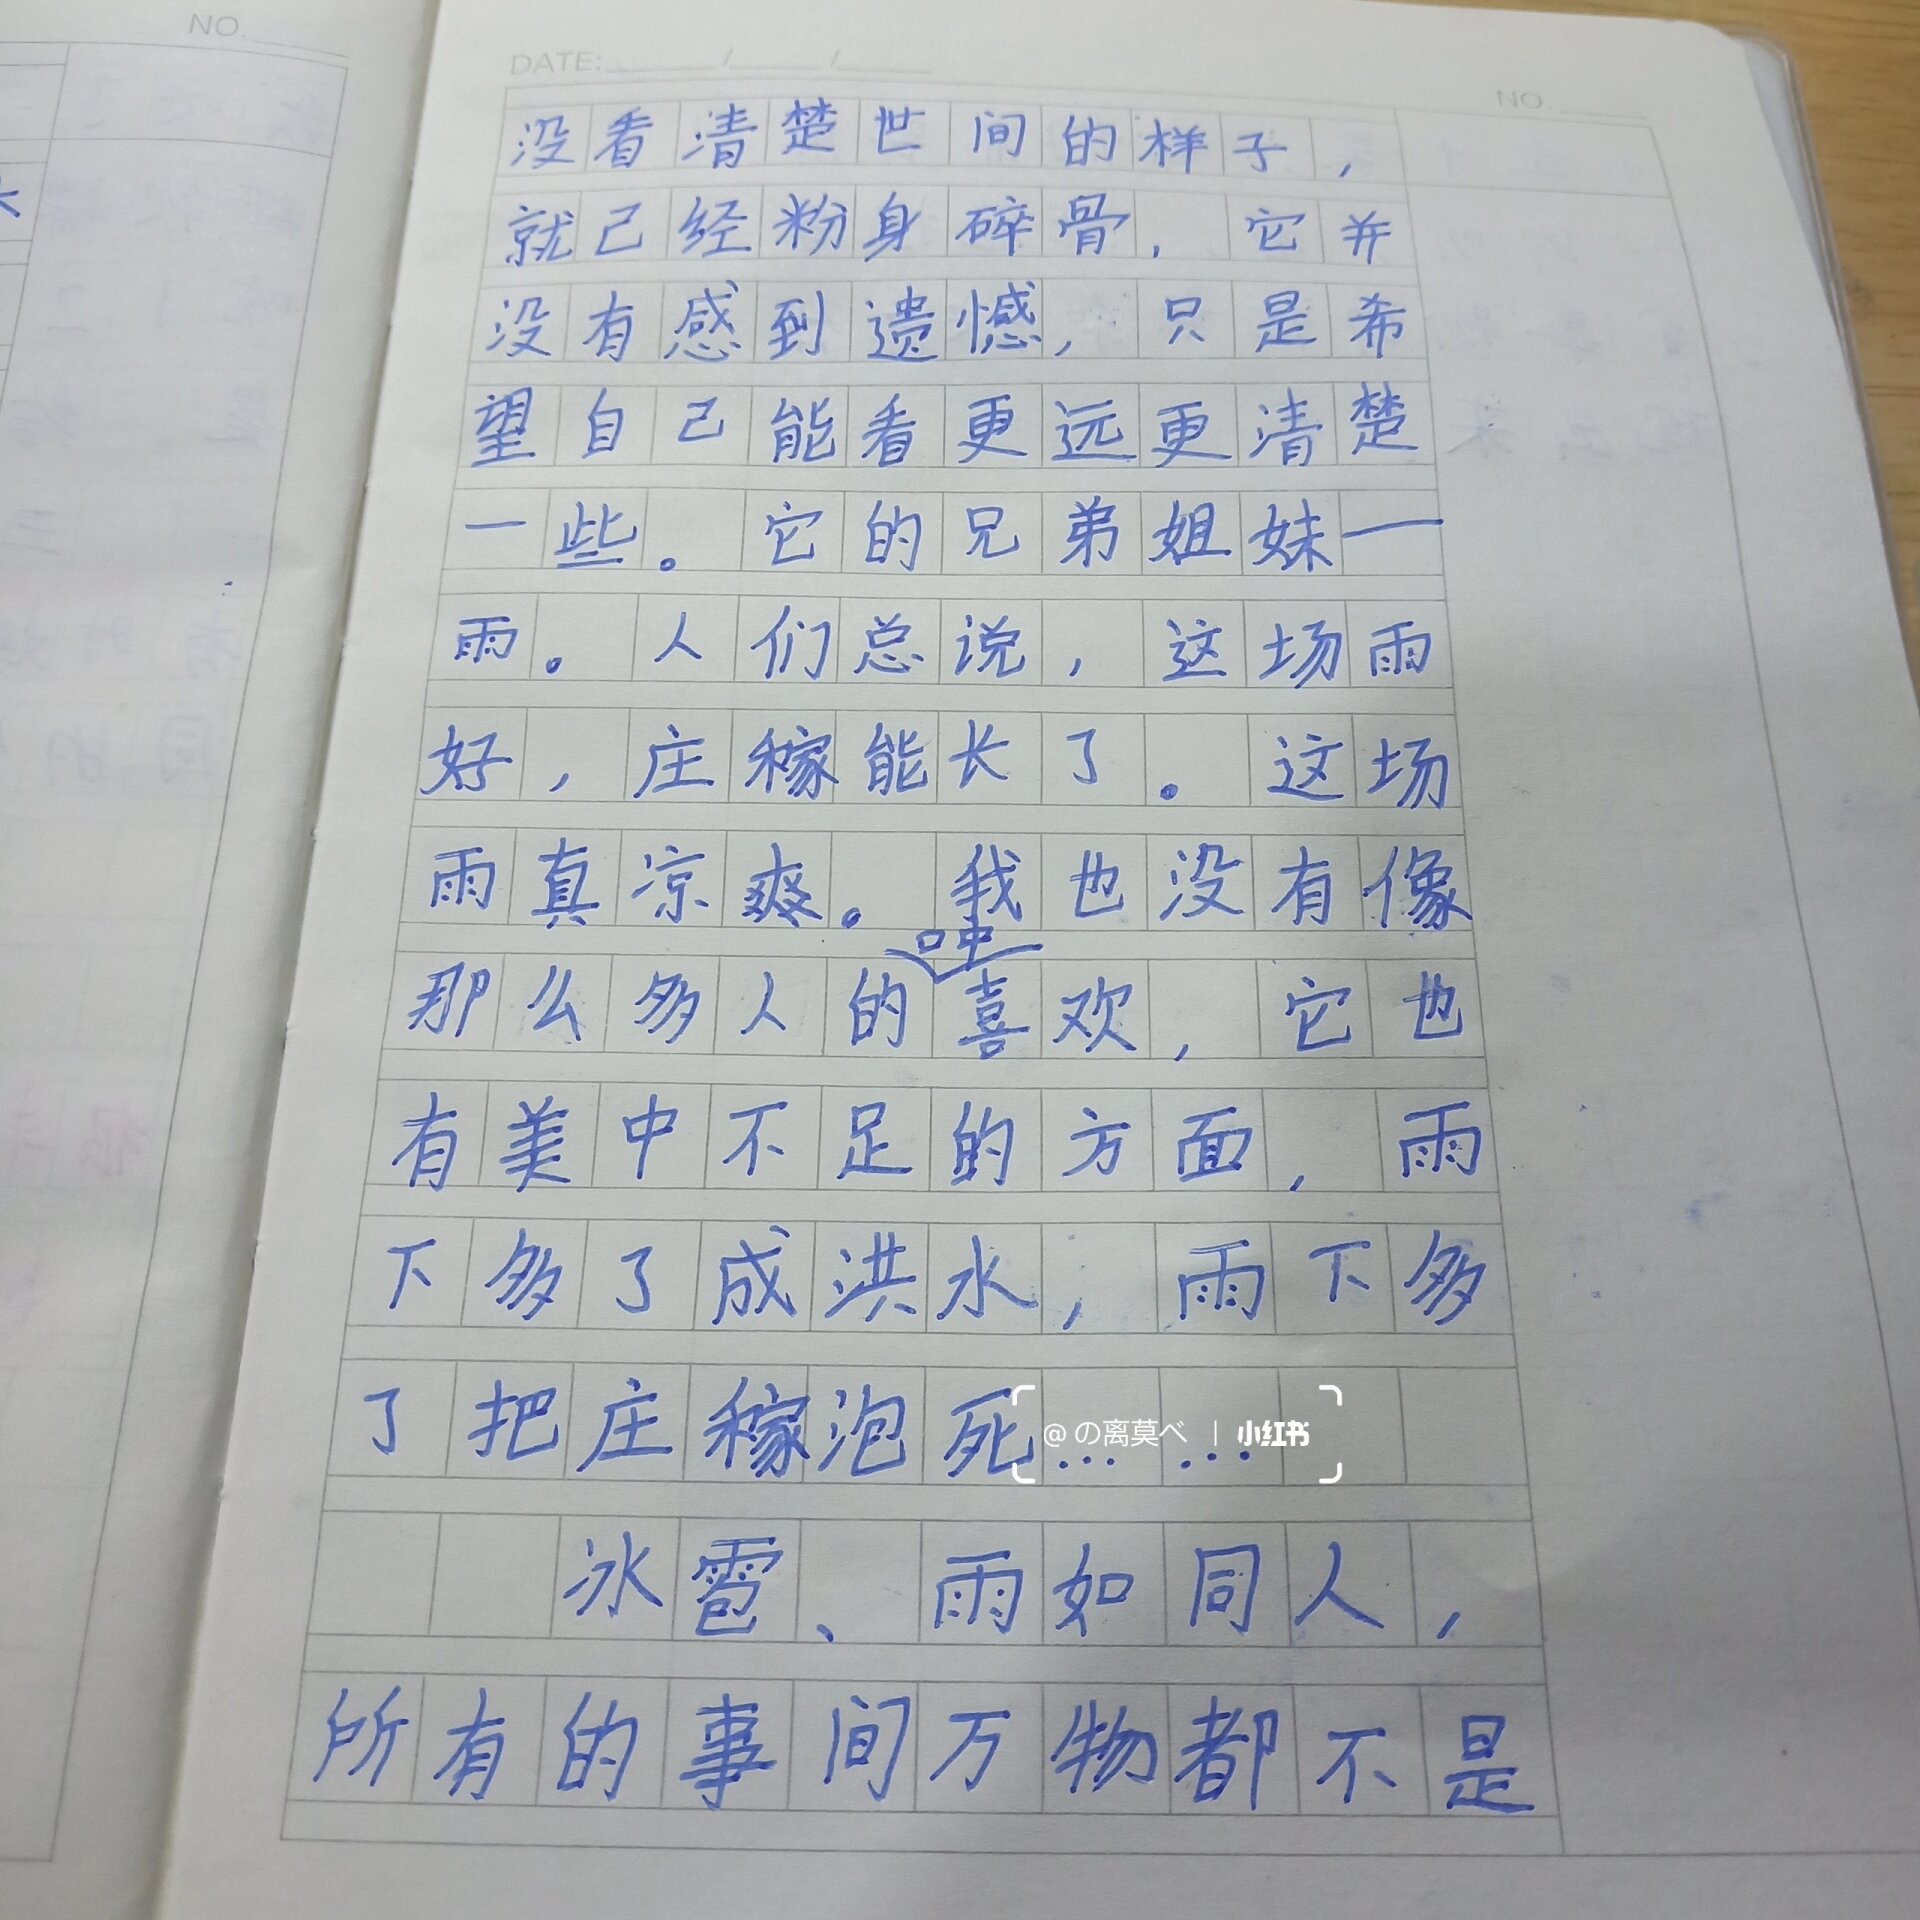 NO.
DATE: / /
NO
没看清楚世间的样子，
就己经粉身碎骨，它并
没有感到遗憾，只是希
望自己能看更远更清楚
一些。它的兄弟姐妹一
雨。人们总说，这场雨
好，庄稼能长了。这场
雨真凉爽。我也没有像
那么多人的喜欢，它也
有美中不足的方面，雨
下多了成洪水，雨下多
了把庄稼泡死……
@の离莫べ | 小红书
冰雹、雨如同人，
所有的事间万物都不是